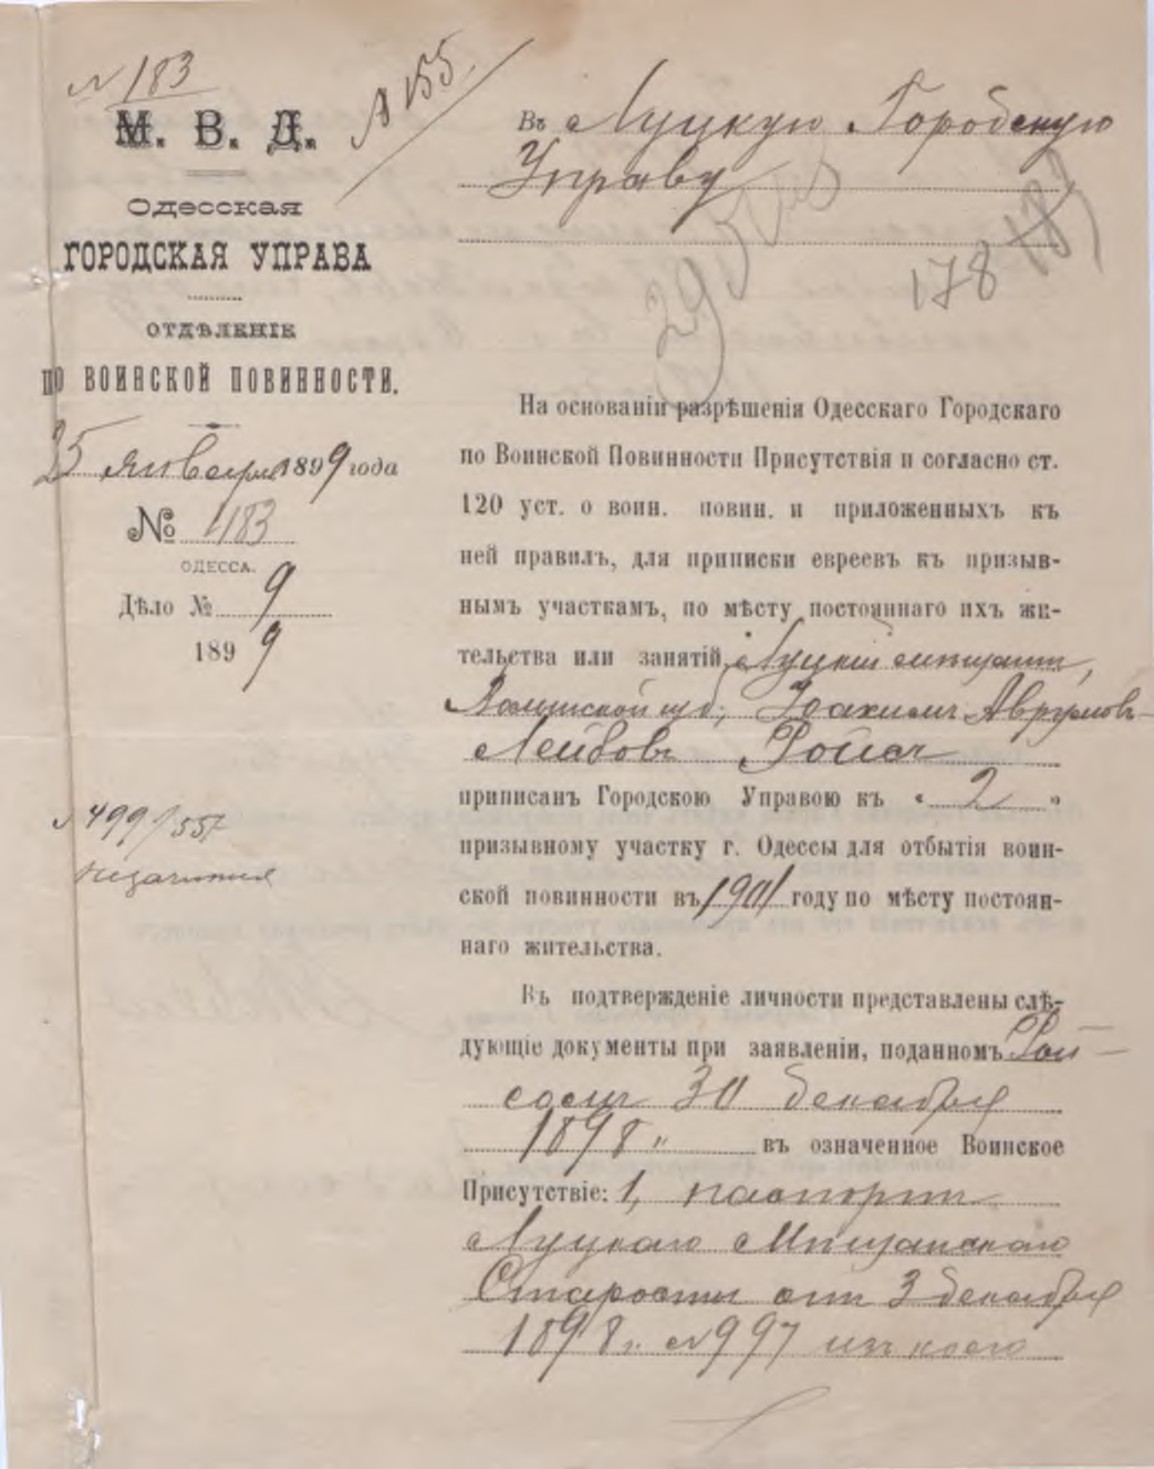 № 183
№ 155.
М. В. Д.
Одесская
ГОРОДСКАЯ УПРАВА
ОТДѢЛЕНІЕ
ПО ВОИНСКОЙ ПОВИННОСТИ.
25 Января 1899 года
№ 183
ОДЕССА.
Дѣло № 9
1899
№ 499/557
Въ Луцкую Городскую
Управу
178 183
На основаніи разрѣшенія Одесскаго Городскаго
по Воинской Повинности Присутствія и согласно ст.
120 уст. о воин. повин. и приложенныхъ къ
ней правилъ, для приписки евреевъ къ призыв-
нымъ участкамъ, по мѣсту постояннаго ихъ жи-
тельства или занятій, Луцкій мѣщанинъ,
Волынской губ., Іоахимъ Аврумовъ-
Лейбовъ Ройсъ
приписанъ Городскою Управою къ « 2 »
призывному участку г. Одессы для отбытія воин-
ской повинности въ 1901 году по мѣсту постоян-
наго жительства.
Въ подтвержденіе личности представлены слѣ-
дующіе документы при заявленіи, поданномъ Рой-
сомъ 30 декабря
1898 „ въ означенное Воинское
Присутствіе: 1, паспортъ
Луцкаго Мѣщанскаго
Старосты отъ 3 декабря
1898 г. № 997 изъ коего